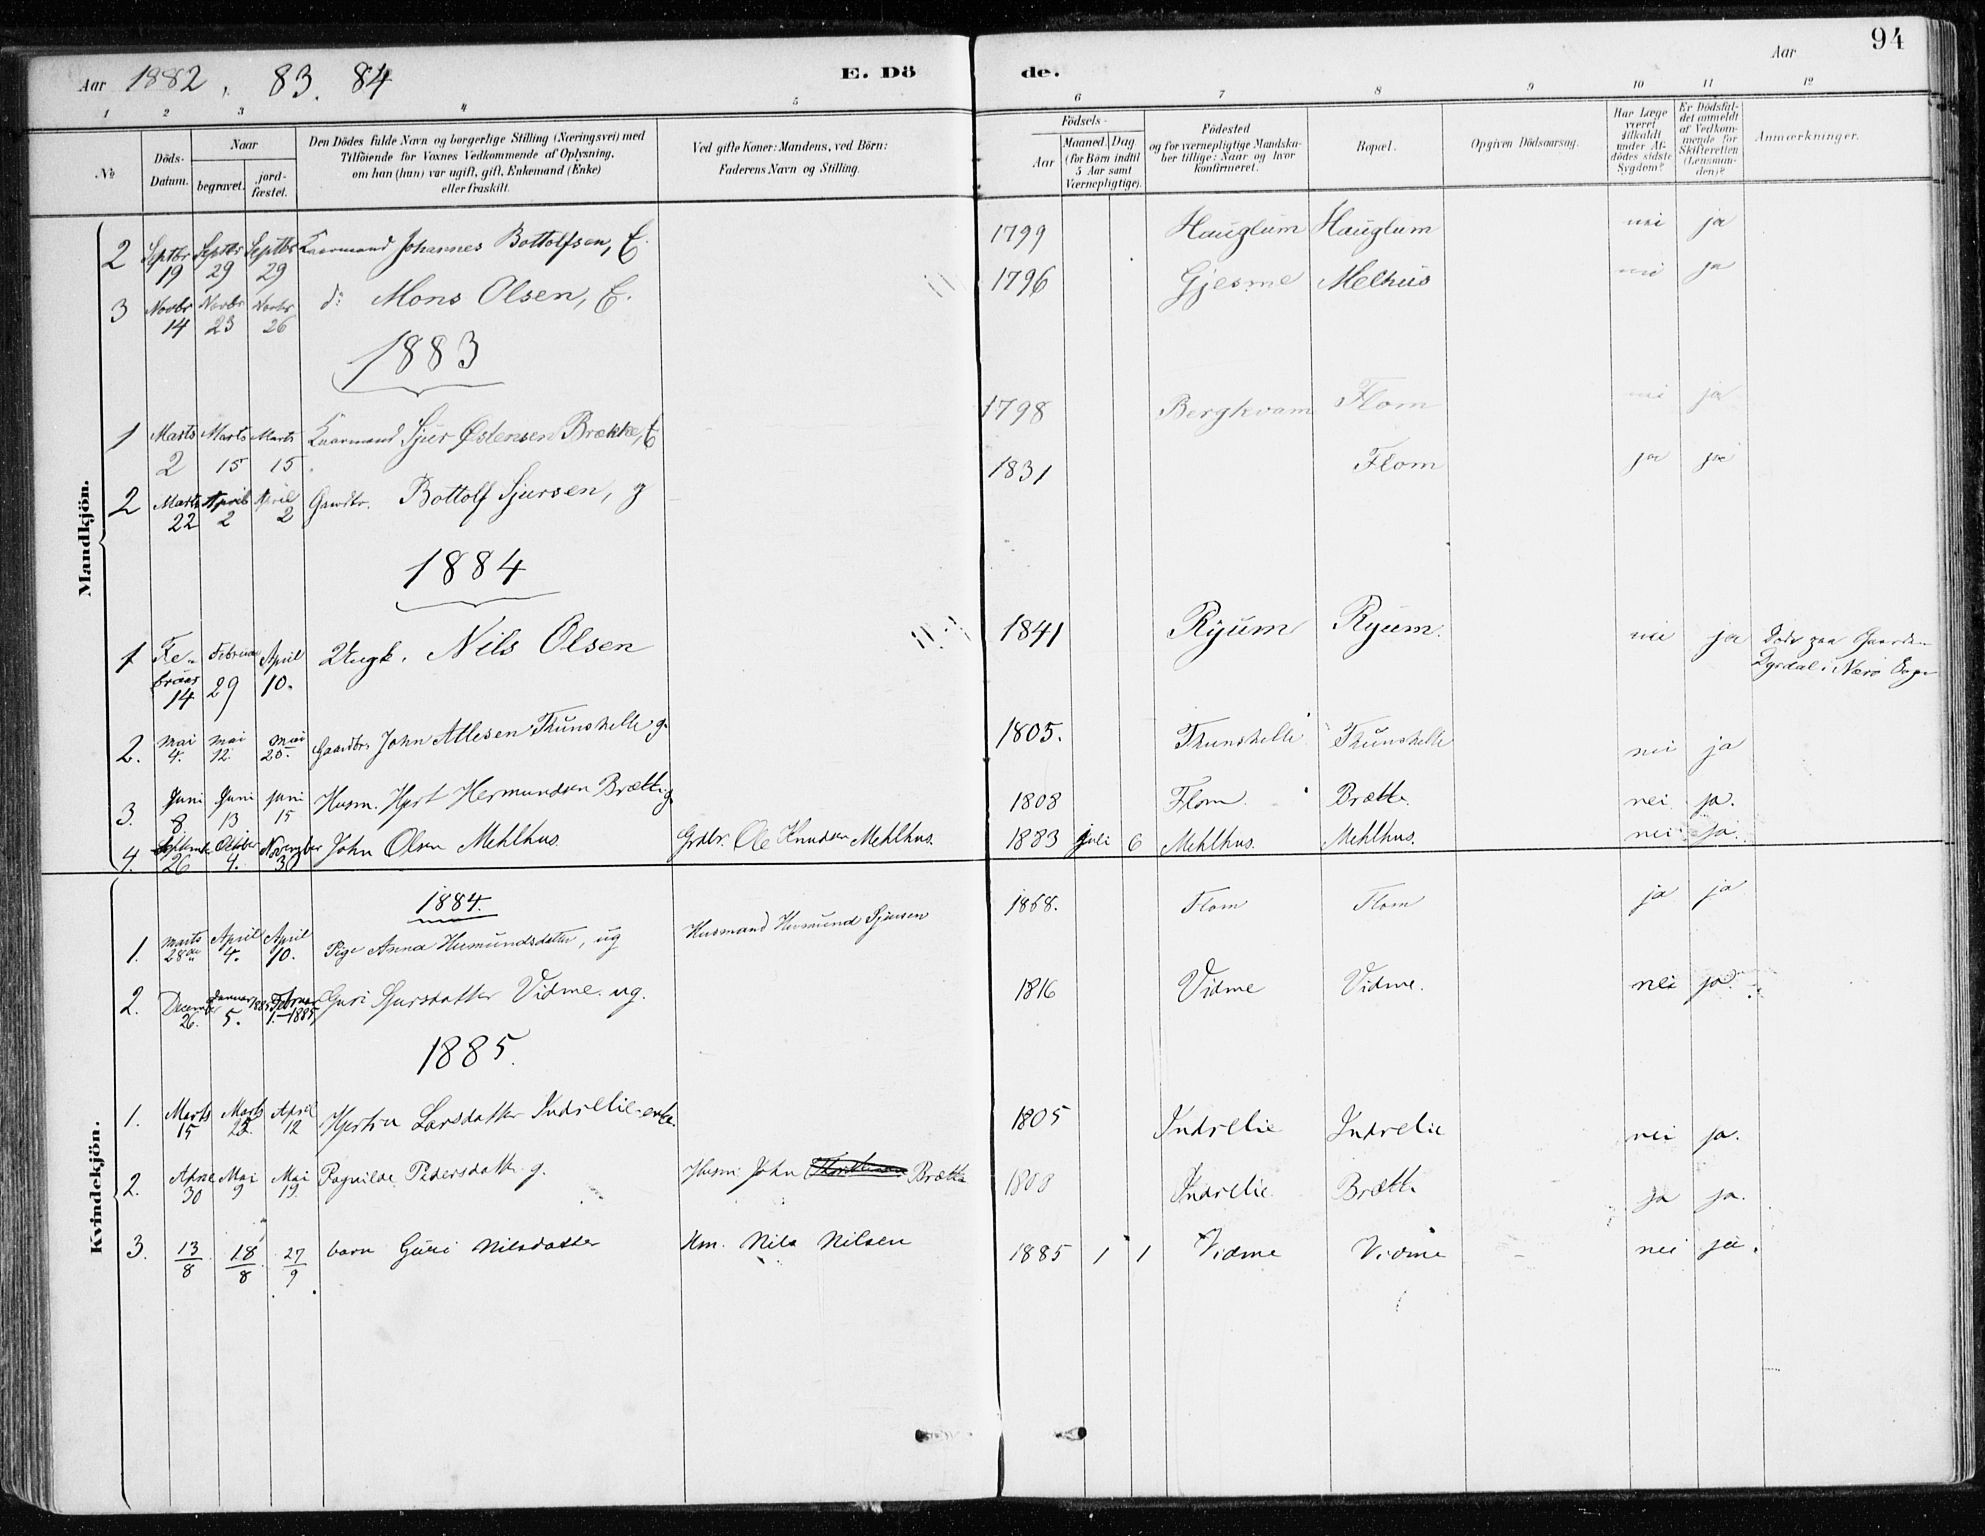 94
Aar 1882, 83. 84 E. Dö de. Aar
1 2 3 4 5 6 7 8 9 10 11 12
№ Döds-Datum. Naar begravet. jordfæstet. Den Dödes fulde Navn og borgerlige Stilling (Næringsvei) med Tilföiende for Voxnes Vedkommende af Oplysning, om han (hun) var ugift, gift, Enkemand (Enke) eller fraskilt. Ved gifte Koner: Mandens, ved Börn: Faderens Navn og Stilling. Födsels- Aar Maaned Dag (for Börn indtil 5 Aar samt Værnepligtige). Födested og for værnepligtige Mandskaber tillige: Naar og hvor konfirmeret. Bopæl. Opgiven Dödsaarsag. Har Læge været tilkaldt under Afdödes sidste Sygdom? Er Dödsfaldet anmeldt af Vedkommende for Skifteretten (Lensmanden)? Anmærkninger.
Mandkjön.
2 Septbr 19 Septbr 29 Septbr 29 Kaarmand Johannes Bottolfsen, E. 1799 Hauglum Hauglum nei ja
3 Novbr 14 Novbr 23 Novbr 26 do Mons Olsen, E. 1796 Gjesme Melhus nei ja
1883
1 Marts 2 Marts 15 Marts 15 Kaarmand Sjur Østensen Brække, E 1798 Bergkvam Flom nei ja
2 Marts 22 April 2 April 2 Gaardbr. Bottolf Sjursen, g 1831 Flom ja ja
1884
1 Februar 14 Februar 29 April 10. Ungk. Nils Olsen 1841 Ryum Ryum. nei ja Døde paa Gaarden Dyrdal i Nærø
2. Mai 4. Mai 12. Mai 25. Gaardbr. John Atlesen Thunshelle g. 1805. Thunshelle Thunshelle nei ja
3. Juni 8. Juni 13 Juni 15 Husm. Hermundsen Brætte g. 1808 Flom. Brætte. nei ja.
4. Septembr 26 October 4. November 30 John Olsen Mehlhus. Grdbr. Ole Knudsen Mehlhus. 1883 Juli 6 Mehlhus. Mehlhus. nei ja.
Kvindekjön.
1884.
1. Marts 28de April 4. April 10. Pige Anna Hermundsdatter, ug Husmand Hermund Sjursen 1868. Flom Flom ja ja
2. December 26. Januar 1885 5. Februar 1.-1885 Guri Sjursdatter Vidme. ug. 1816 Vidme Vidme. nei ja.
1885.
1. Marts 15 Marts 22. April 12 Larsdatter Indrelie enke. 1805 Indrelie Indrelie nei ja.
2. April 30 Mai 9 Mai 19. Ragnilde Pedersdatter g. Husm John Brætte 1808 Indrelie. Brætte ja ja.
3. 13/8 18/8 27/9 barn Guri Nilsdatter Hm. Nils Nilsen 1885 1 1 Vidme Vidme nei ja.